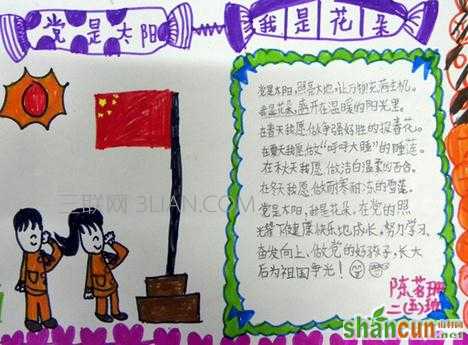 党是太阳 我是花朵
党是太阳,照亮大地,让万物充满生机。
我是花朵,盛开在温暖的阳光里。
在春天我愿做争强好胜的报春花。
在夏天我愿做“呼呼大睡”的睡莲。
在秋天我愿做洁白温柔的百合。
在冬天我愿做耐寒耐冻的雪莲。
党是太阳,我是花朵,在党的照
光辉下健康快乐地成长,努力学习,
奋发向上,做党的好孩子,长大
后为祖国争光!
陈茗珊
二(五)班
三联网 3LIAN.COM
shancun